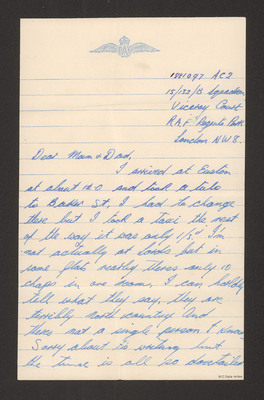 1881097 AC2
15/122/B Squadron
Viceroy Court
R.A.F. Regents Park
London N.W.8.
Dear Mam & Dad,
I arrived at Euston
at about 12.0 and took a tube
to Baker St, I had to change
there but I took a taxi the rest
of the way it was only 1/3d I'm
not actually at Lords but in
some flats nearby theres only 10
chaps in one room, I can hardly
tell what they say, they are
terribly north country And
theres not a single person I know
Sorry about the writing but
the time is all so